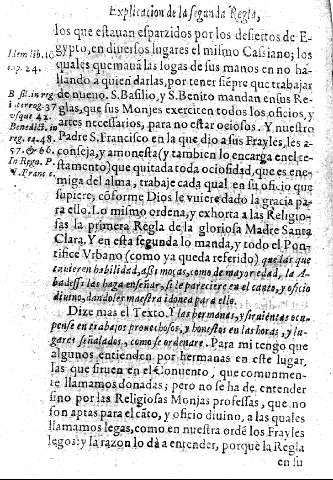 Explicacion de la segunda Regla,
los que estauan esparzidos por los desiertos de E-
gypto, en diuersos lugares el mismo Cassiano; los
quales quemauã las logas de sus manos en no ha-
llando a quien darlas, por tener siẽpre que trabajar
de nueuo. S. Basilio, y S. Benito mandan en sus Re-
glas, que sus Monjes exerciten todos los oficios, y
artes necessarios, para no estar ociosos. Y nuestro
Padre S. Francisco en la que dio a sus Frayles, les a-
conseja, y amonesta (y tambien lo encarga en el te-
stamento) que quitada toda ociosidad, que es ene-
miga del alma, trabaje cada qual en su oficio que
supiere, cõforme Dios le vuiere dado la gracia pa-
ra ello. Lo mismo ordena, y exhorta a las Religio-
sas la primera Regla de la gloriosa Madre Santa
Clara. Y en esta segunda lo manda, y todo el Pon-
tifice Vrbano (como ya queda referido) que las que
tuuieren habilidad, assi moças, como de mayor edad, la A-
badessa las haga enseñar, si le pareciere en el canto, y oficio
diuino, dandoles maestra idonea para ello.
Dize mas el Texto. Y las hermanas, y siruientes ocu-
pense en trabajos prouechosos, y honestos en las horas, y lu-
gares señalados, como se ordenare. Para mi tengo que
algunos entienden por hermanas en este lugar,
las que siruen en el Conuento, que comunmen-
te llamamos donadas; pero no se ha de entender
sino por las Religiosas Monjas professas, que no
son aptas para el cãto, y oficio diuino, a las quales
llamamos legas, como en nuestra ordẽ los Frayles
legos: y la razon lo da a entender, porque la Regla
en su
Idem lib. 10
cap. 24.
B sil. in reg
interrog. 37
vsque 42.
Benedict. in
reg. ca. 48.
57. & 66.
In Regu. P.
N. Franc. c.